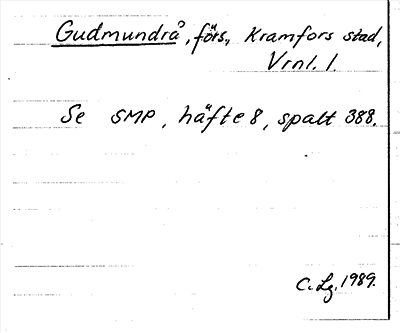 Gudmundrå, förs., Kramfors stad,
Vrnl. 1.
Se SMP, häfte 8, spalt 388.
C. Lg. 1989.